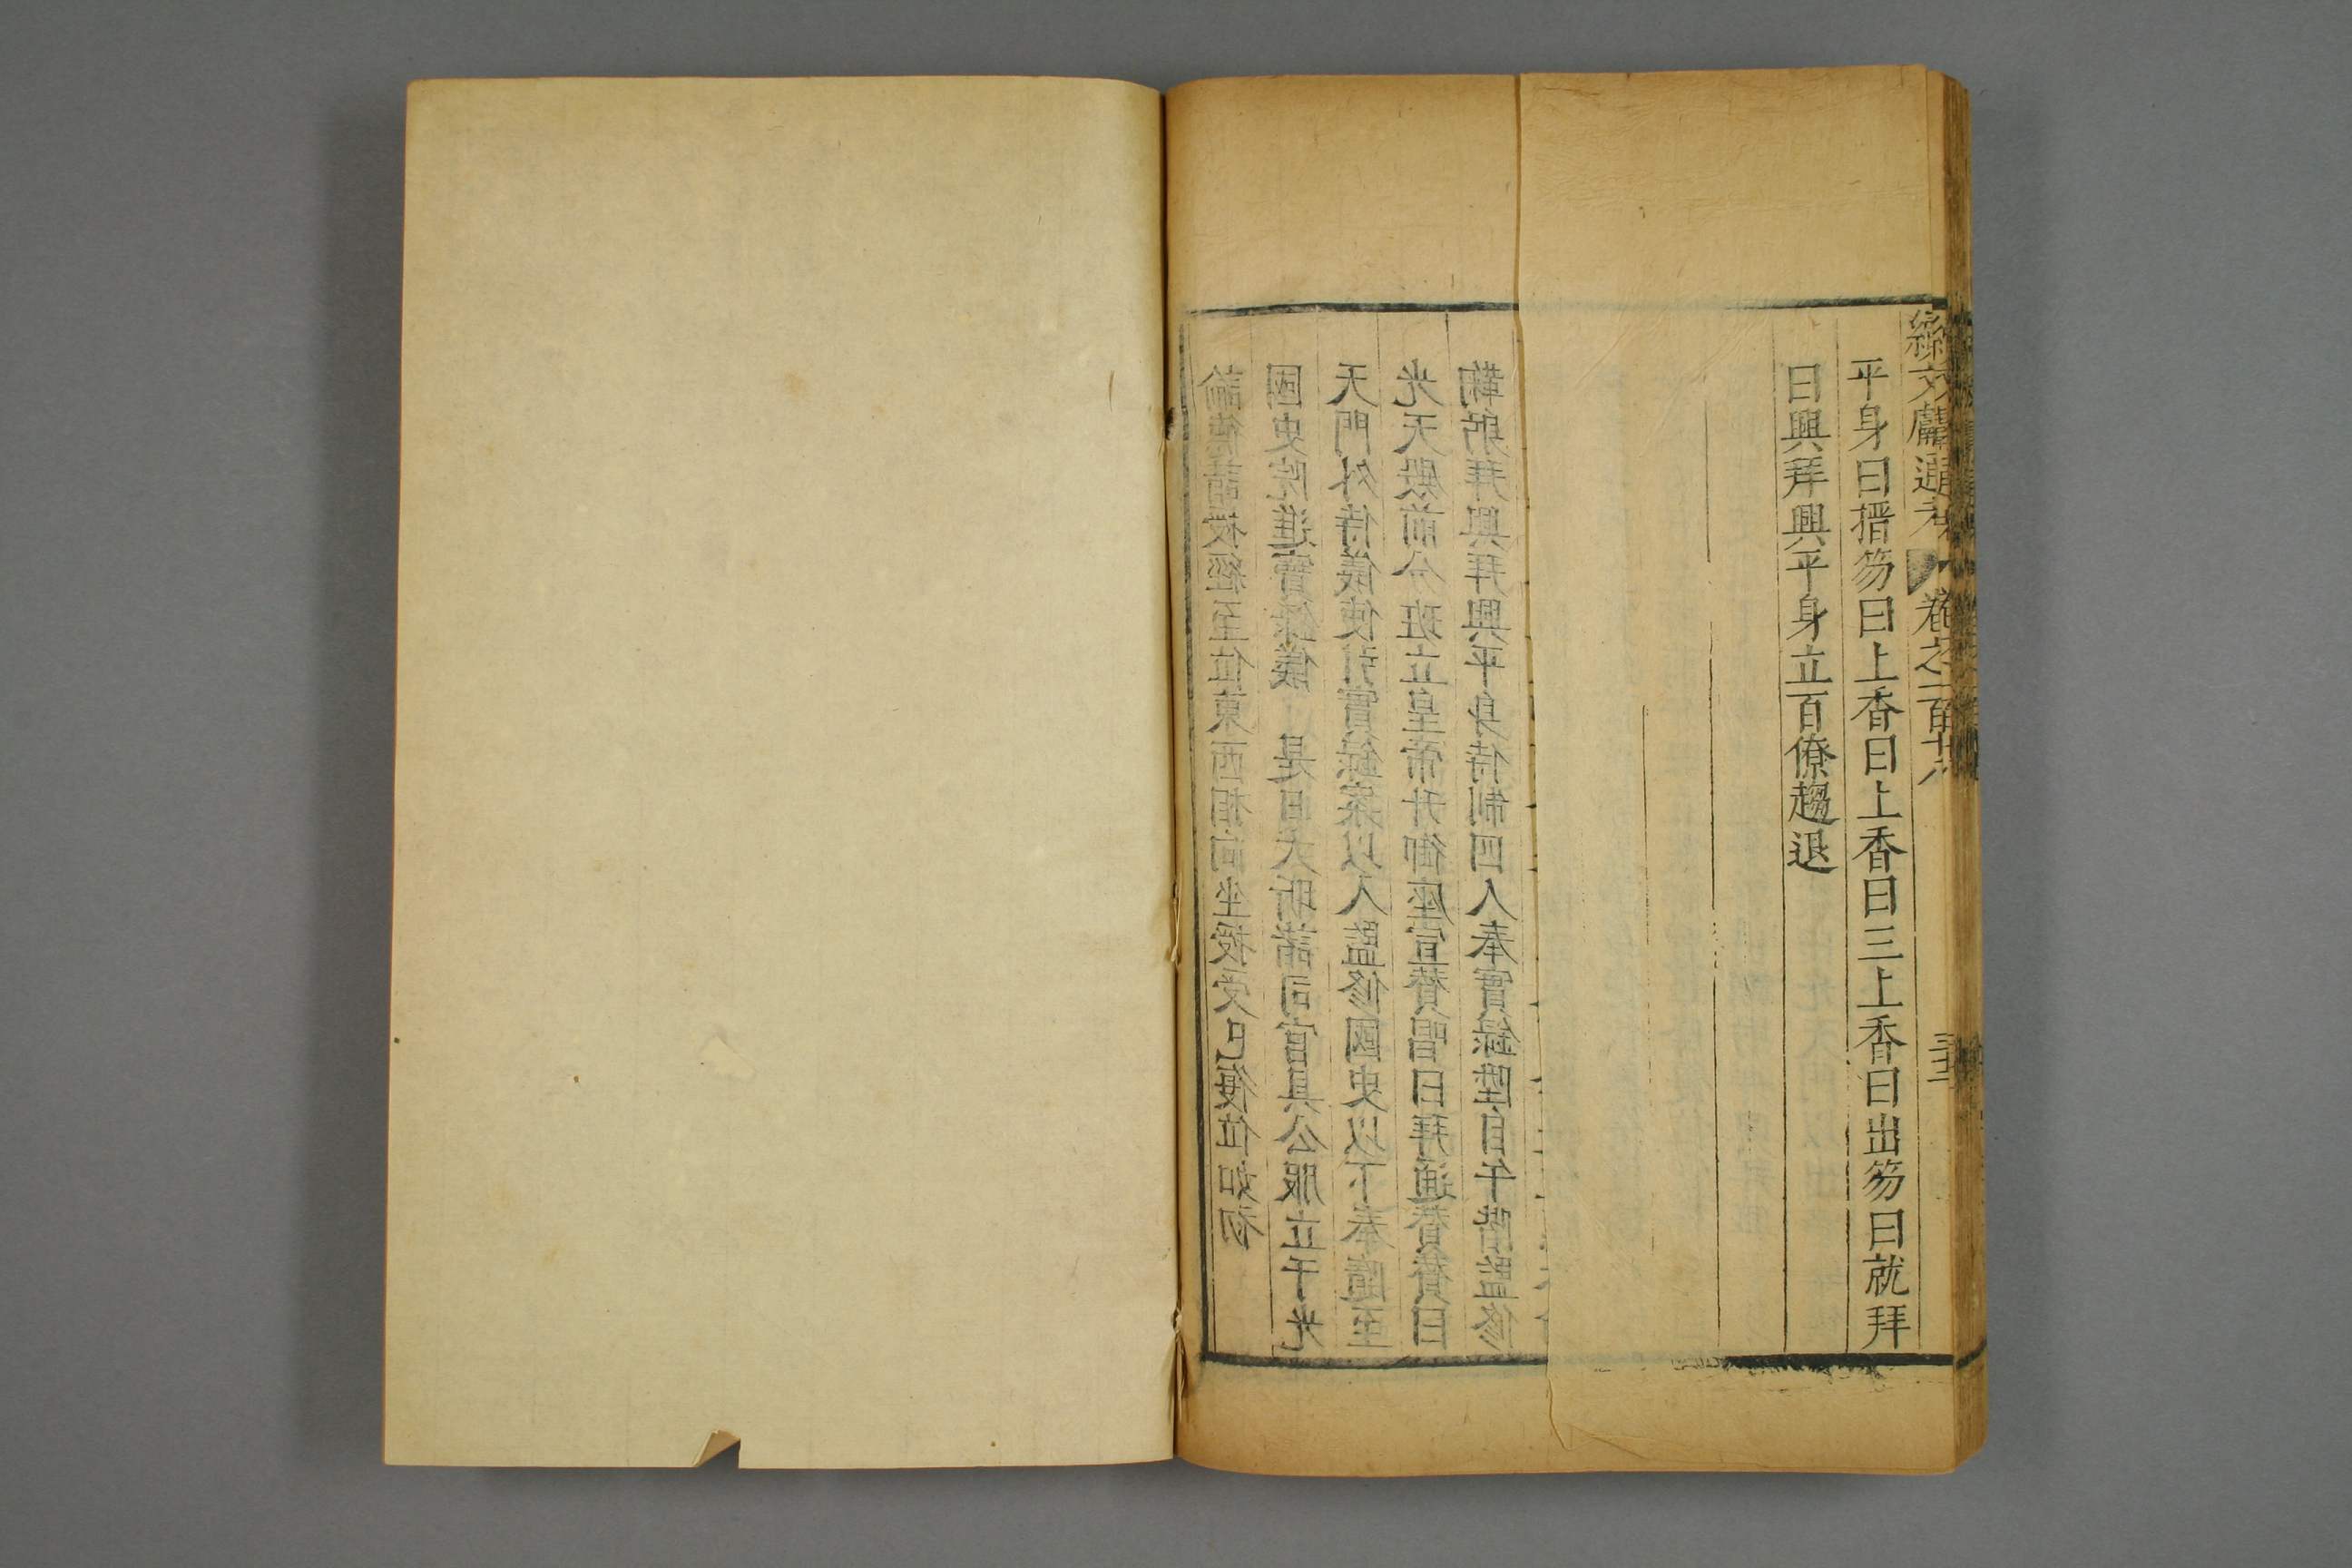 續文獻通考 卷之一百
平身曰搢笏曰上香曰上香曰三上香曰出笏曰就拜
曰興拜興平身立百僚趨退
諭德請授經至位東西相向坐授受已復位如初
國史院進實錄儀 是日大昕諸司官具公服立于光
天門外侍儀使引實錄案以入監修國史以下奉隨至
光天殿前分班立皇帝升御座宣贊唱曰拜通贊贊曰
鞠躬拜興拜興平身待制四人奉實錄陞自午階監修